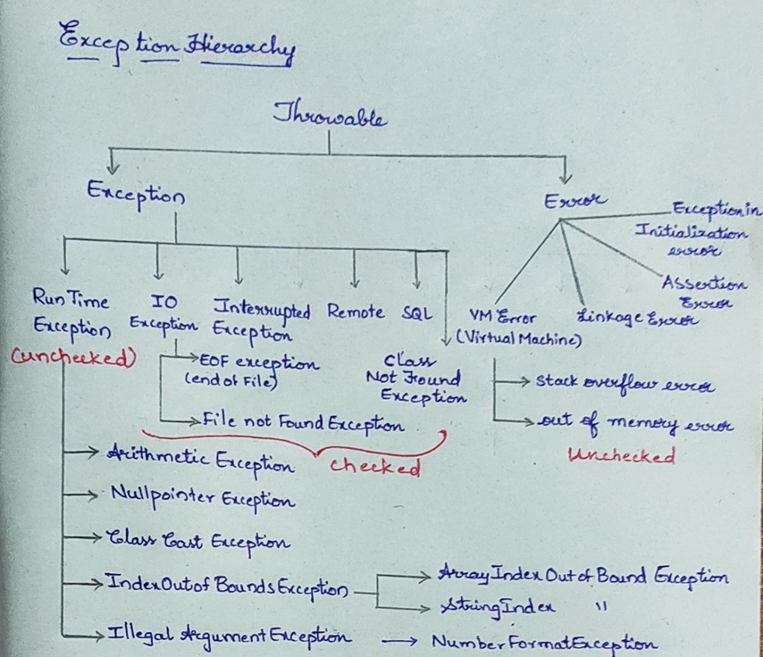 Exception Hierarchy
Throwable
Exception
Error
Exception in
Initialization
error
Assertion
Error
Linkage Error
VM Error
(Virtual Machine)
Stack overflow error
out of memory error
Unchecked
Run Time
Exception
(unchecked)
IO
Exception
Interrupted
Exception
Remote
SQL
Class
Not Found
Exception
EOF exception
(end of File)
File not Found Exception
checked
Arithmetic Exception
Nullpointer Exception
Class Cast Exception
IndexOutof BoundsException
ArrayIndex Out of Bound Exception
StringIndex "
Illegal Argument Exception
NumberFormatException